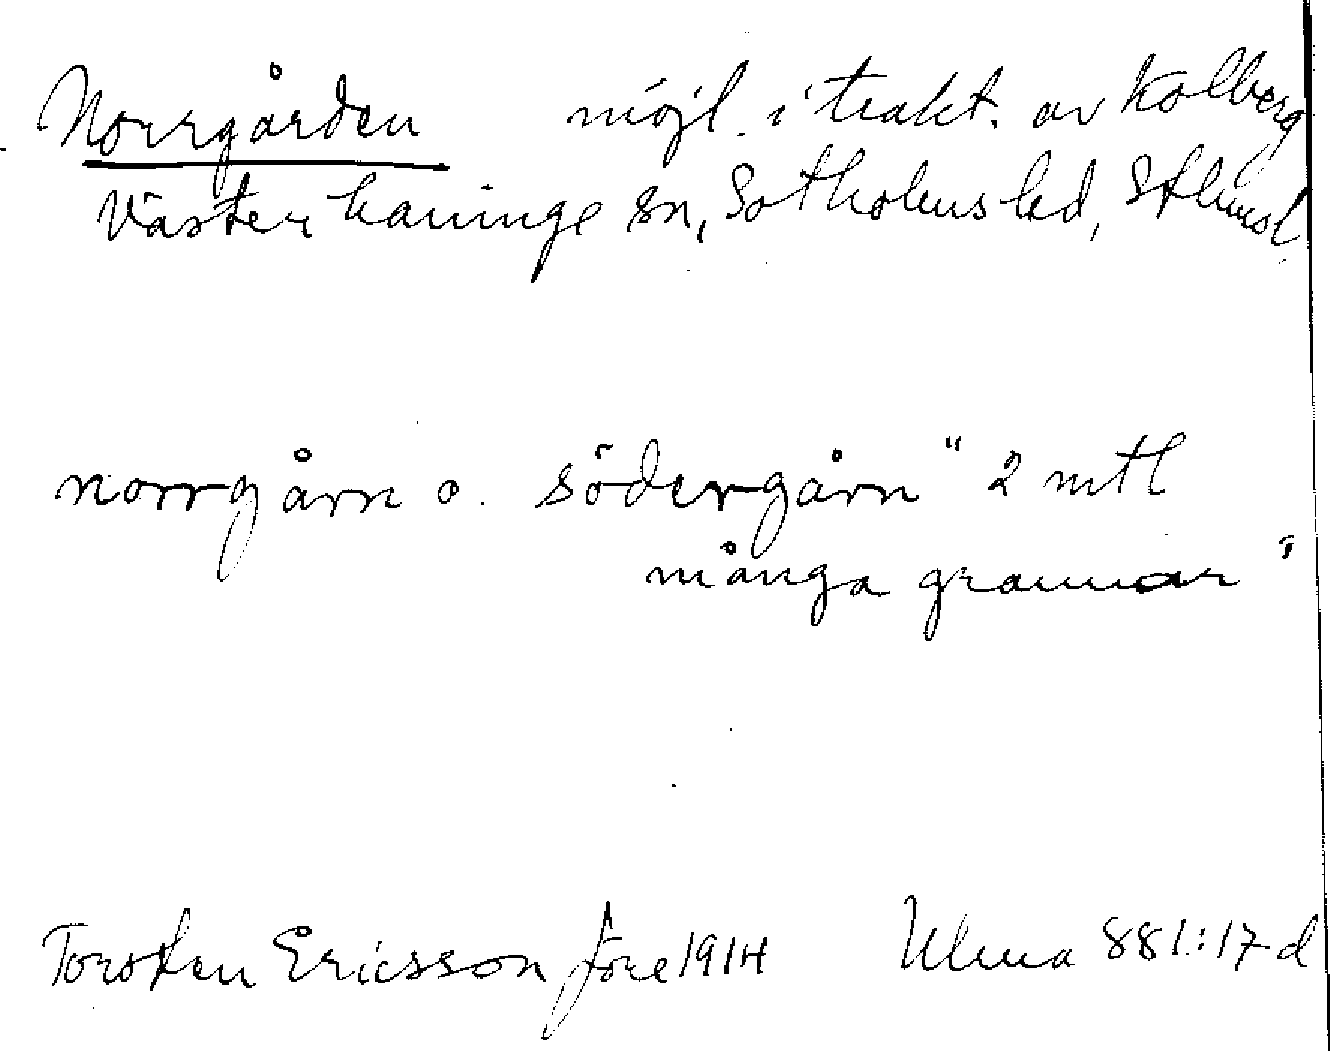 Norrgården möjl. i trakt. av Kolberg
Västerhaninge sn, Sotholms hd, Sthlmsl.
norrgårn o. södergårn " 2 mtl
många grannar "
Torsten Ericsson före 1914 Ulma 881:17 d